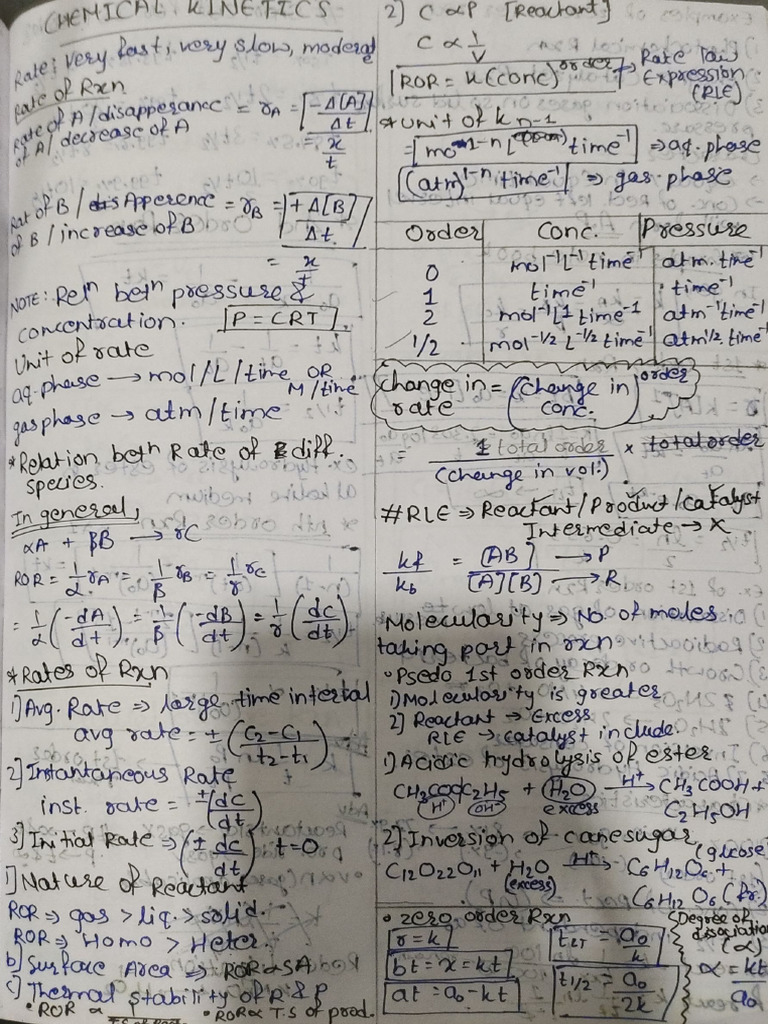 CHEMICAL KINETICS
Rate: very fast, very slow, moderate
Rate of Rxn
Rate of A/disapperance = rA = -Δ[A]/Δt
of A/decrease of A
= x/t
Rat of B/Apperence = rB = +Δ[B]/Δt
of B/increase of B
= x/t
NOTE: Relⁿ betⁿ pressure &
concentration. P = CRT
Unit of rate
aq. phase → mol/L/time OR M/time
gas phase → atm/time
*Relation betn Rate of diff.
species.
In general,
αA + βB → rC
ROR = 1/α rA = 1/β rB = 1/r rC
= 1/α (-dA/dt) = 1/β (-dB/dt) = 1/r (dC/dt)
*Rates of Rxn
1) Avg. Rate ⇒ large time interval
avg rate = ± (C2-C1/t2-t1)
2] Instantaneous Rate
inst. rate = ±(dC/dt)
3] Initial Rate ⇒ (± dC/dt) t=0
1] Nature of Reactant
ROR ⇒ gas > liq. > solid.
ROR ⇒ Homo > Heter.
b) Surface Area ⇒ ROR ∝ SA
c) Thermal stability of R & P
• ROR ∝ • ROR ∝ T.S of prod.
2] C ∝ P [Reactant]
C ∝ 1/V
ROR = k(conc)^order → Rate law
Expression
(RLE)
*Unit of k
= mol^1-n L^n-1 time⁻¹ ⇒ aq. phase
(atm)^1-n time⁻¹ ⇒ gas phase
Order Conc. Pressure
0 mol⁻¹L⁻¹ time⁻¹ atm. time⁻¹
1 time⁻¹ time⁻¹
2 mol⁻¹L¹ time⁻¹ atm⁻¹time⁻¹
1/2 mol⁻¹/² L⁻¹/² time⁻¹ atm¹/² time⁻¹
Change in rate = (Change in conc.)^order
= 1 total order/(Change in vol.) × total order
#RLE ⇒ Reactant/Product/Catalyst
Intermediate → X
kf/kb = [AB]/[A][B] → P → R
Molecularity ⇒ No. of moles
taking part in rxn
• Psedo 1st order Rxn
1) Molecularity is greater
2) Reactant → Excess
RLE → catalyst include.
1) Acidic hydrolysis of ester
CH3COOC2H5 + H2O H⁺→ CH3COOH +
H⁺ OH⁻ excess C2H5OH
2] Inversion of canesugar (glucose)
C12O22O11 + H2O H⁺→ C6H12O6 +
(excess) C6H12O6 (fr.)
• Zero order Rxn
r = k
bt = x = kt
at = a0 - kt
= a0/k
t1/2 = a0/2k
Degree of
dissociation
(α)
α = kt/a0